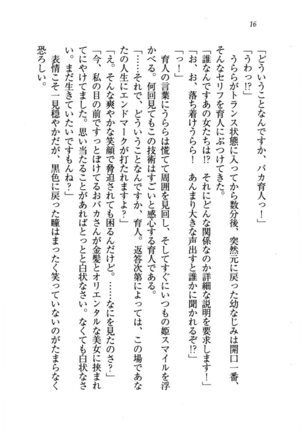 16
「どういうことなんですか、バカ育人っ！」
「うわっ!?」
うららがトランス状態に入ってから数分後、突然元に戻った幼なじみは開口一番、
そんなセリフを育人にぶつけてきた。
「誰なんですあの女たちは!? それにどんな関係なのか詳細な説明を要求します！」
「お、お、落ち着けうらら！ あんまり大きな声出すと誰かに聞かれるぞ!?」
「っ！」
育人の言葉にうららは慌てて周囲を見回し、そしてすぐにいつもの姫スマイルを浮
かべる。何回見てもこの技術はすごいと感心する育人である。
「……それで、どういうことなんですか、育人。返答次第によっては、この場であな
たの人生にエンドマークが打たれますわよ？」
「え。そんな爽やかな笑顔で脅迫されても困るんだけど。……なにを見たのさ？」
「今、私の目の前ですっとぼけてるおバカさんが金髪とオリエンタルな美女に挟まれ
てにやけてました。思い当たることがあればとっとと白状なさい。なくても白状なさ
い。まだ生きていたいですもんね？」
表情こそ一見穏やかだが、黒色に戻った瞳はまったく笑っていないのがたまらなく
恐ろしい。